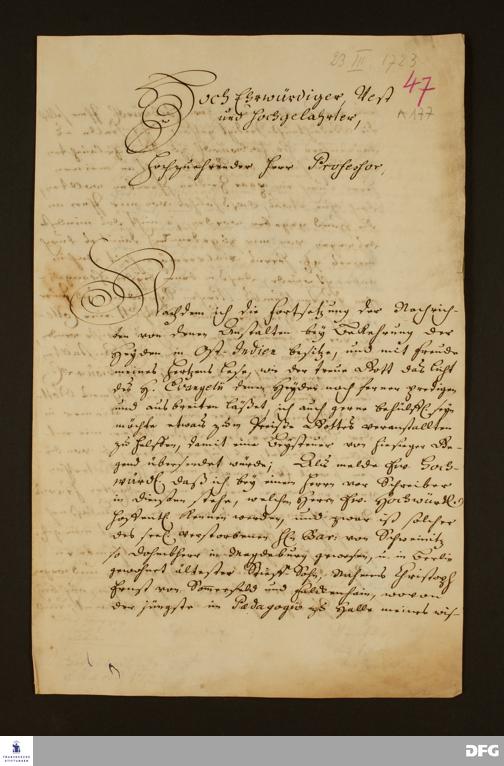 23 III 1723
47
177
Hoch Ehrwürdiger, Vest
und Hochgelahrter,
Hochzuehrender Herr Professor,
Nachdem ich die Fortsetzung der Nachrich-
ten von denen Anstalten bey Bekehrung der
Heyden in Ost-Indien besitze, und mit Freude
meines Hertzens lese, wie der treue Gott das Licht
des H. Evangelii denen Heyden noch ferner predigen
und ausbreiten läßet, ich auch gerne behülffl. seyn
möchte etwas zum Preiße Gottes veranstallten
zu helffen, damit eine Beysteuer von hiesiger Ge-
gend übersendet würde; Als melde Ew. Hoch-
würd. daß ich bey einem Herrn vor Schreiber
in Diensten stehe, welchen Herrn Ew. Hochwürd.
hoffentl. kennen werden, und zwar ist solcher
des seel. verstorbenen H. Bar. von Schweinitz
so Dohmherr in Magdeburg gewesen, u. in Berlin
gewohnet ältester Stieff-Sohn, Nahmens Christoph
Ernst von Sommerfeld und Falckenhain, wovon
der jüngste im Pædagogio zu Halle meines wiß-
FRANCKESCHE
STIFTUNGEN
DFG